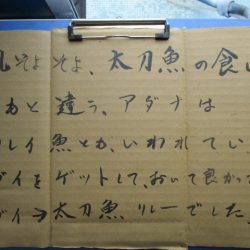 風そよそよ、太刀魚の食い
カと違う、アダナは
レイ魚とか、いわれてい
ダイをゲットして、おいて良かっ
ダイ→太刀魚リレーでした